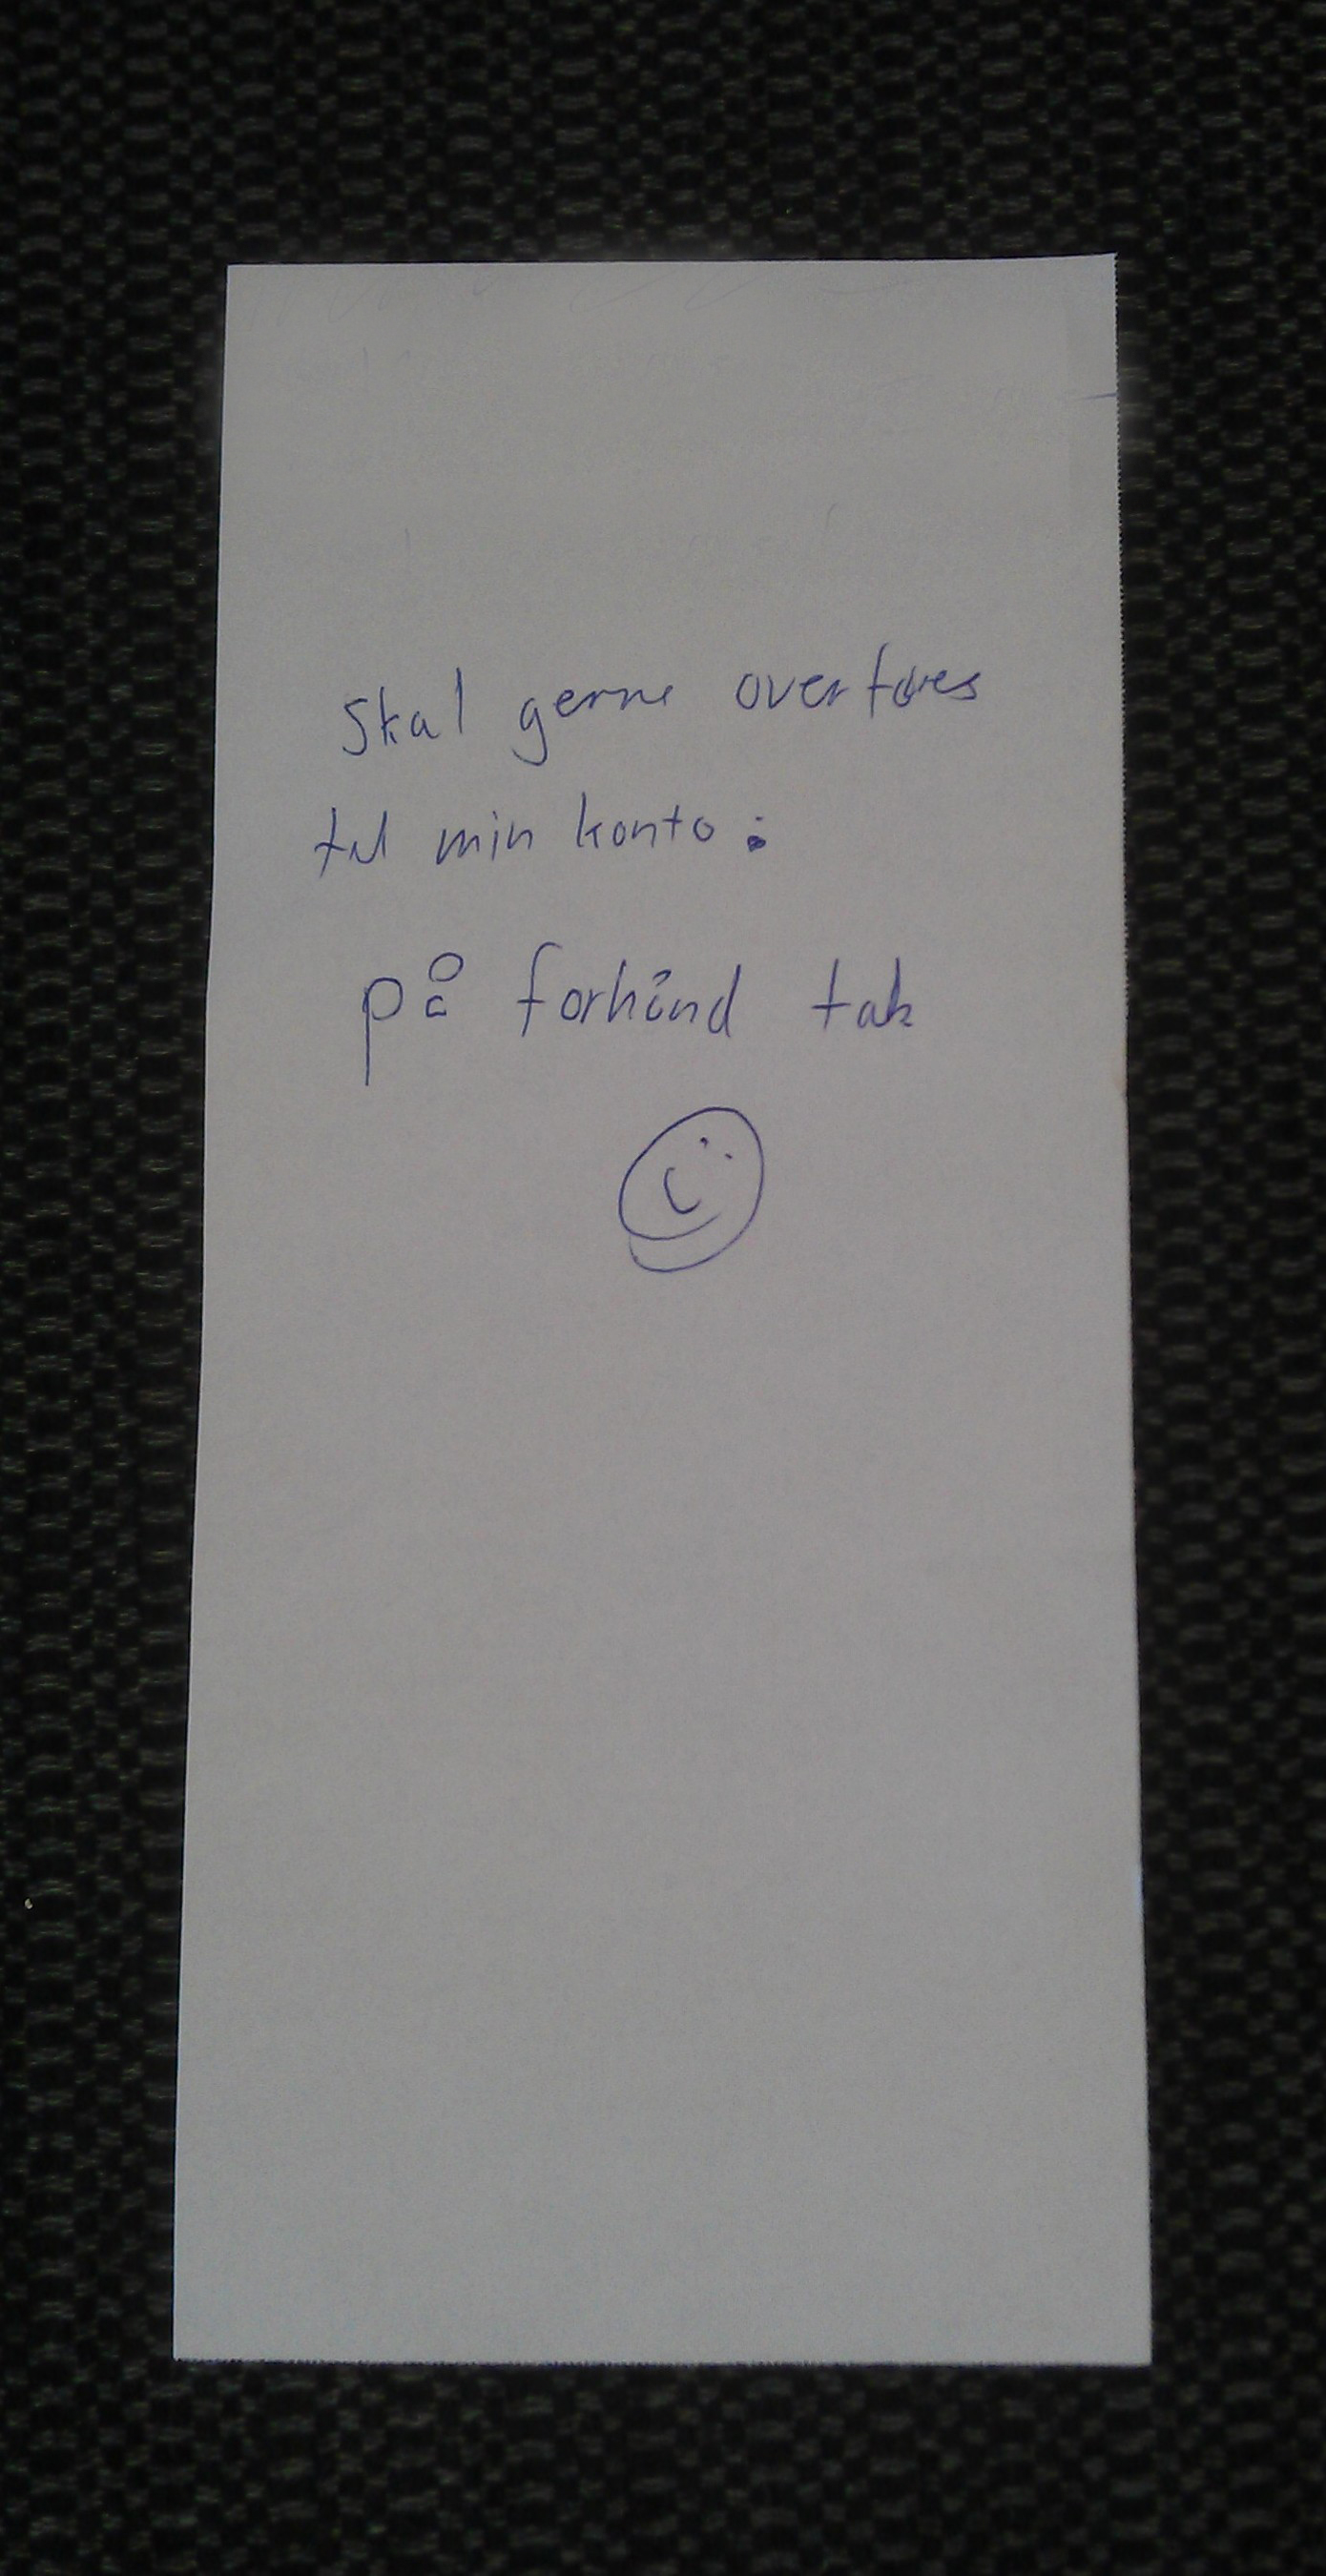 Skal gerne overføres
til min konto :
på forhånd tak